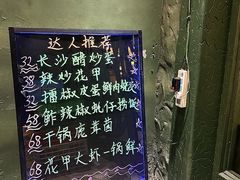 达人推荐
32 长沙醋炒蛋
38 辣炒花甲
32 擂椒皮蛋鲜肉烧
58 鲊辣椒虾仔捞饭
68 干锅鹿茸菌
68 花甲大虾一锅鲜